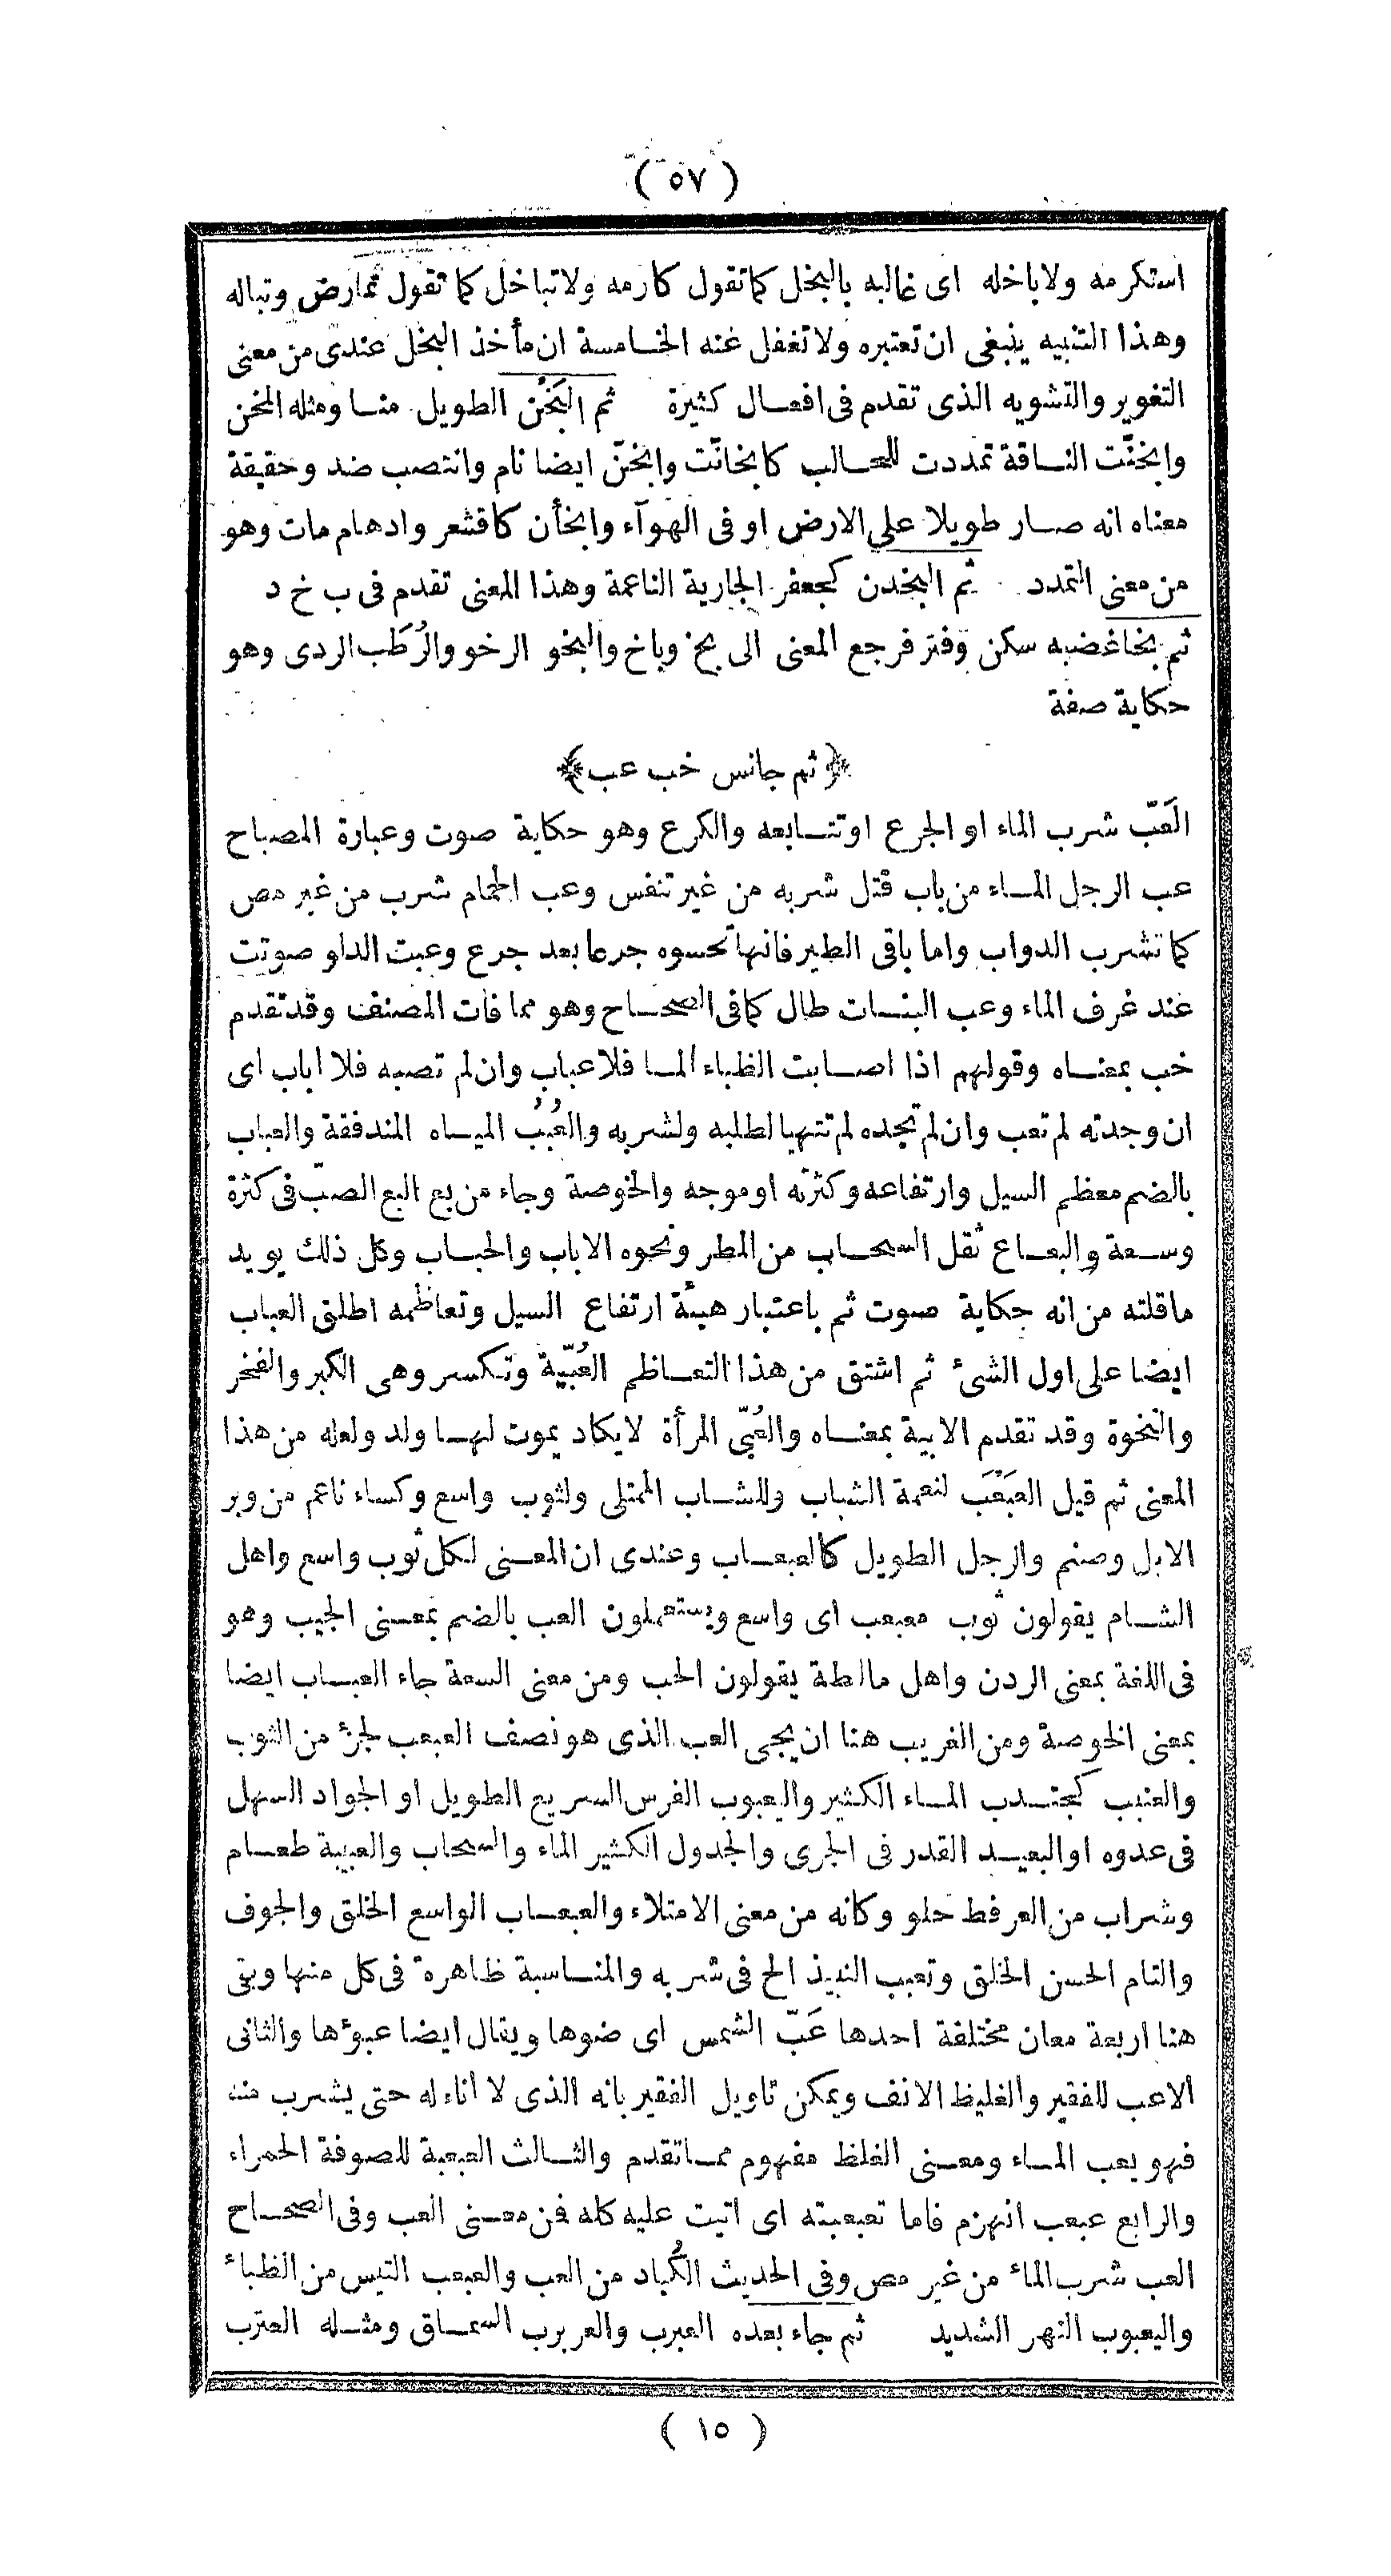 ( ٥٧ )
استكرمه ولاباخله اى غالبه بالبخل كما تقول كارمه ولا تباخل كما تقول تمارض وتباله
وهذا التنبيه ينبغى ان تعتبره ولا تغفل عنه الخامسة ان مأخذ البخل عندى من معنى
التغوير والتشويه الذى تقدم فى افعال كثيرة ثم البَخْن الطويل منا ومثله المخن
وابخنّت الناقة تمددت للحالب كابخانّت وابخنّ ايضا نام وانتصب ضد وحقيقة
معناه انه صار طويلا على الارض او فى الهوآء وابخأن كاقشعر وادهام مات وهو
من معنى التمدد ثم البخدن كجعفر الجارية الناعمة وهذا المعنى تقدم فى ب خ د
ثم بخا غضبه سكن وفتر فرجع المعنى الى بخ وباخ والبخو الرخو والرُطَب الردى وهو
حكاية صفة
﴿ ثم جانس خب عب ﴾
العَبّ شرب الماء او الجرع او تتابعه والكرع وهو حكاية صوت وعبارة المصباح
عب الرجل الماء من باب قتل شربه من غير تنفس وعب الحمام شرب من غير مص
كما تشرب الدواب واما باقى الطير فانها تحسوه جرعا بعد جرع وعبت الدلو صوتت
عند غرف الماء وعب النبات طال كما فى الصحاح وهو مما فات المصنف وقد تقدم
خب بمعناه وقولهم اذا اصابت الظباء الما فلا عباب وان لم تصبه فلا اباب اى
ان وجدته لم تعب وان لم تجده لم تتهيا لطلبه ولشربه والعُبُب المياه المندفقة والعباب
بالضم معظم السيل وارتفاعه وكثرته او موجه والخوصة وجاء من بع البع الصبّ فى كثرة
وسعة والبعاع ثقل السحاب من المطر ونحوه الاباب والحباب وكل ذلك يويد
ماقلته من انه حكاية صوت ثم باعتبار هيئة ارتفاع السيل وتعاظمه اطلق العباب
ايضا على اول الشئ ثم اشتق من هذا التعاظم العُبّيّة وتكسر وهى الكبر والفخر
والنخوة وقد تقدم الابية بمعناه والعُبّى المرأة لايكاد يموت لها ولد ولعله من هذا
المعنى ثم قيل العَبْعَب لنعمة الشباب وللشاب الممتلى ولثوب واسع وكساء ناعم من وبر
الابل وصنم والرجل الطويل كالعبعاب وعندى ان المعنى لكل ثوب واسع واهل
الشام يقولون ثوب معبعب اى واسع ويستعملون العب بالضم بمعنى الجيب وهو
فى اللغة بمعنى الردن واهل مالطة يقولون الحب ومن معنى السعة جاء العباب ايضا
بمعنى الخوصة ومن الغريب هنا ان يجى العب الذى هو نصف العبعب لجزء من الثوب
والعنبب كجندب الماء الكثير واليعبوب الفرس السريع الطويل او الجواد السهل
فى عدوه او البعيد القدر فى الجرى والجدول الكثير الماء والسحاب والعبيبة طعام
وشراب من العرفط حلو وكانه من معنى الامتلاء والعبعاب الواسع الخلق والجوف
والتام الحسن الخلق وتعبب النبيذ الح فى شربه والمناسبة ظاهرة فى كل منها وبقى
هنا اربعة معان مختلفة احدها عَبّ الشمس اى ضوها ويقال ايضا عبؤها والثانى
الاعب للفقير والغليظ الانف ويمكن تاويل الفقير بانه الذى لا اناء له حتى يشرب منه
فهو يعب الماء ومعنى الغلظ مفهوم مما تقدم والثالث العبعبة للصوفة الحمراء
والرابع عبعب انهزم فاما تعبعبته اى اتيت عليه كله فمن معنى العب وفى الصحاح
العب شرب الماء من غير مص وفى الحديث الكُباد من العب والعبعب التيس من الظباء
واليعبوب النهر الشديد ثم جاء بعده العبرب والعربرب السماق ومثله العترب
( ١٥ )